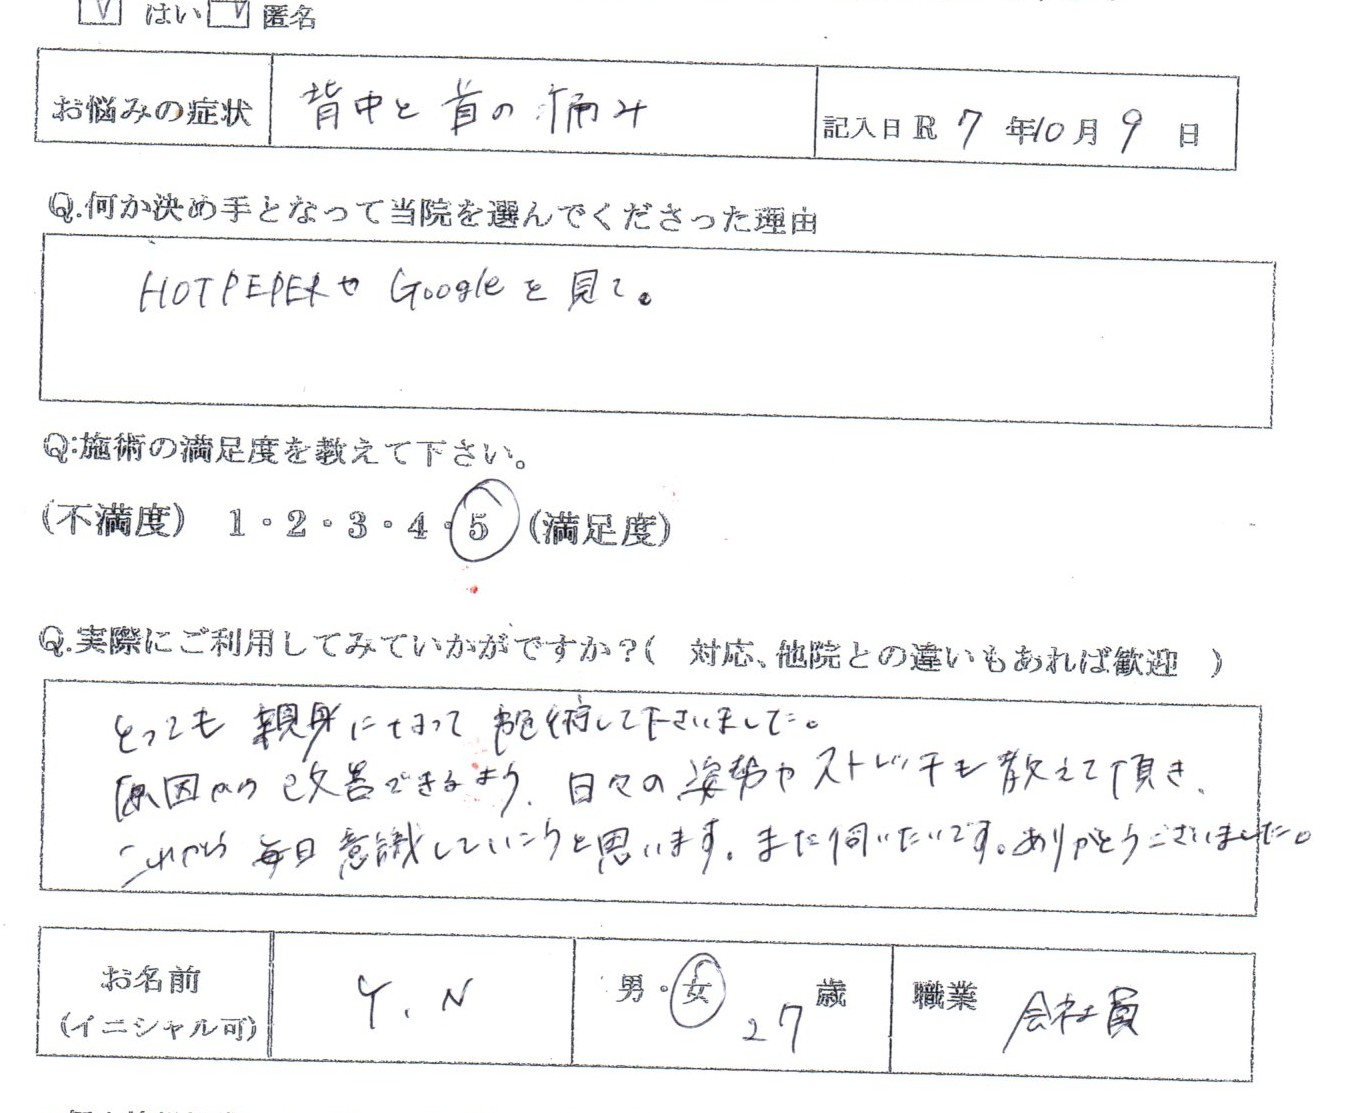 はい 匿名
お悩みの症状 背中と首の痛み 記入日 R 7 年 10 月 9 日
Q.何か決め手となって当院を選んでくださった理由
HOTPEPERや Googleを見て。
Q:施術の満足度を教えて下さい。
(不満度) 1・2・3・4・5 (満足度)
Q.実際にご利用してみていかがですか?( 対応、他院との違いもあれば歓迎 )
とっても親身になって施術して下さいました。
原因から改善できるよう、日々の姿勢やストレッチも教えて頂き、
これから毎日意識していこうと思います。また伺いたいです。ありがとうございました。
お名前 Y.N 男・女 27 歳 職業 会社員
(イニシャル可)